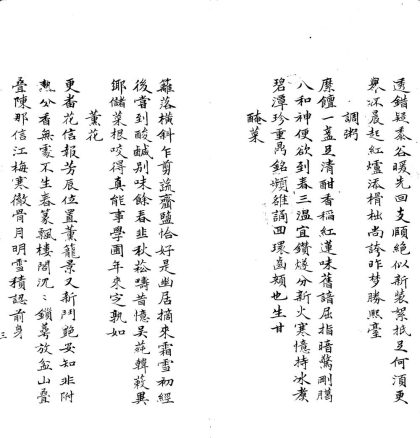 透錯疑黍谷暖先回支頤絶似新裝絮抵足何須更
寒冰晨起紅爐添榾柮尚誇昨夢勝熙臺
調粥
糜饘一盞足清酣香稻紅蓮味舊諳屈指暗驚剛臘
八和神便欲到春三温宜鑽燧分新火寒憶持冰煮
碧潭珍重禹銘頻雒誦回環齒頰也生甘
醃菜
籬落橫斜乍剪疏齏鹽恰好是幽居摘來霜雪初經
後嘗到酸鹹别味餘春韭秋菘疇昔憶吳蓴韓蔌異
鄉儲菜根咬得真能事學圃年來定孰如
薰花
更番花信報芳辰位置薰籠景又新鬥艶妄知非附
熱分香無豪不生春篆飄樓閣沉沉鎖萼放盆山疊
疊陳那信江梅寒徹骨月明雪積認前身
三